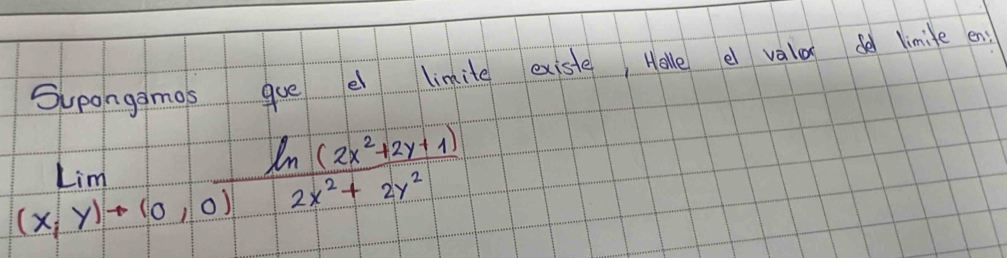 Supongamos que el limite existe, Halle el valor del limite en:
Lim ln (2x²+2y+1)
(x, y)→(0, 0) 2x²+ 2y²